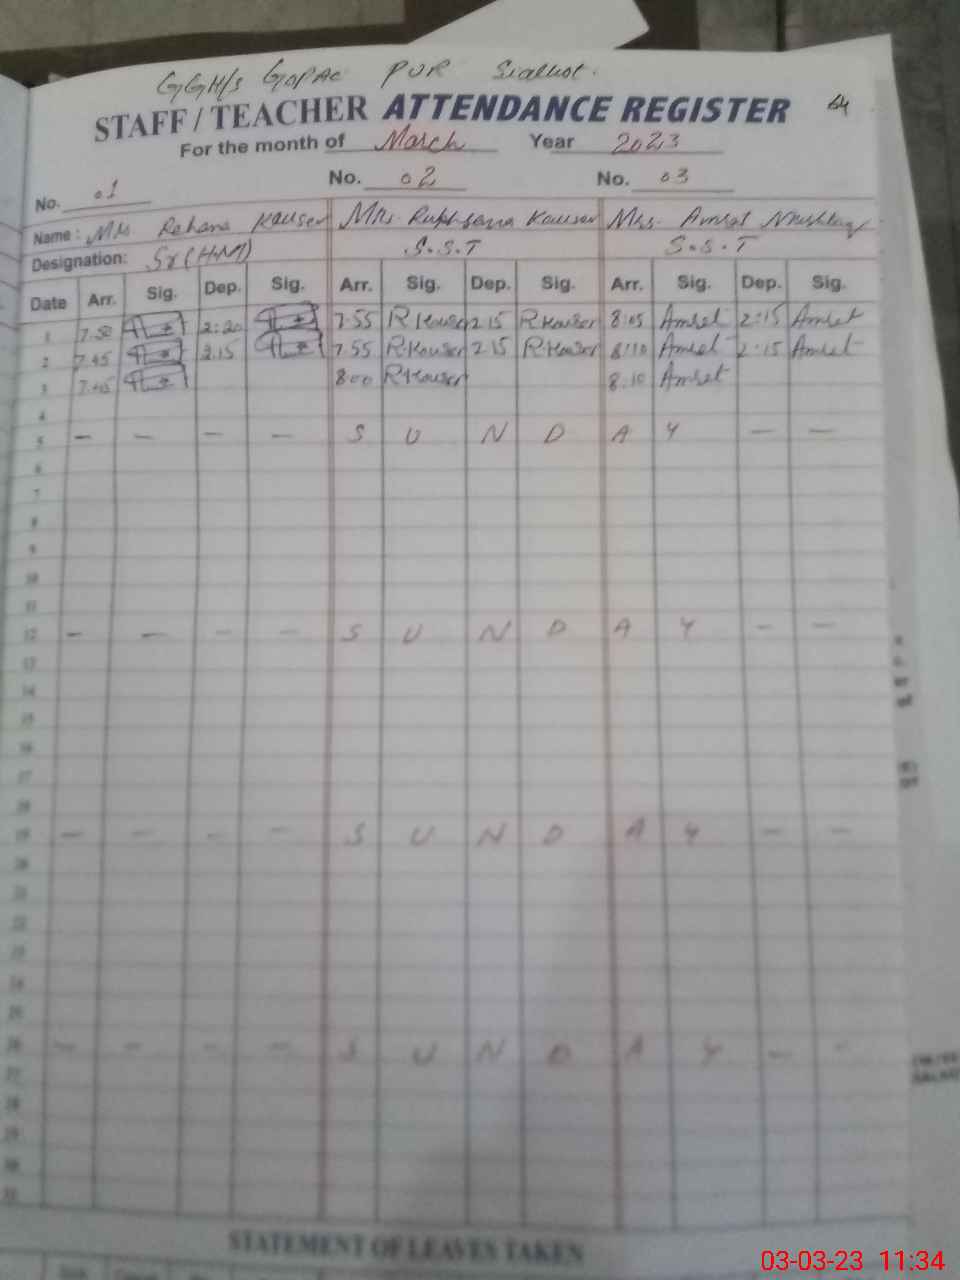 GGH/S GOPAL PUR Sialkot.
STAFF / TEACHER ATTENDANCE REGISTER
For the month of March Year 2023
No. 01 No. 02 No. 03
Name: Mrs. Rehana Kauser Mrs. Rukhsana Kauser Mrs. Amrat
Designation: Sr (HM) S.S.T S.S.T
Date Arr. Sig. Dep. Sig. Arr. Sig. Dep. Sig. Arr. Sig. Dep. Sig.
1 7.50 2:20 7.55 R.Kauser 2 15 R.Kauser 8:05 Amrat 2:15 Amrat
2 7.45 2.15 7.55 R.Kauser 2 15 R.Kauser 8:10 Amrat 2:15 Amrat
3 7.45 8.00 R.Kauser 8.10 Amrat
4
5 — — — — S U N D A Y — —
6
7
8
9
10
11
12 — — — — S U N D A Y — —
13
14
15
16
17
18
19 — — — — S U N D A Y — —
20
21
22
23
24
25
26 — — — — S U N D A Y — -
27
28
29
30
31
STATEMENT OF LEAVES TAKEN
03-03-23 11:34